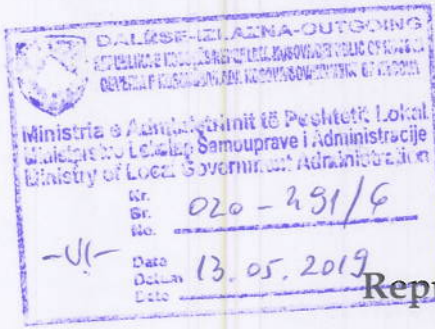 DALËSE-IZLAZNA-OUTGOING
Ministria e Administrimit të Pushtetit Lokal
Ministarstvo Lokalne Samouprave i Administracije
Ministry of Local Government Administration
Nr.
Br.
No.
020-291/6
-VI-
Data
Datum
Date
13.05.2019
Repu